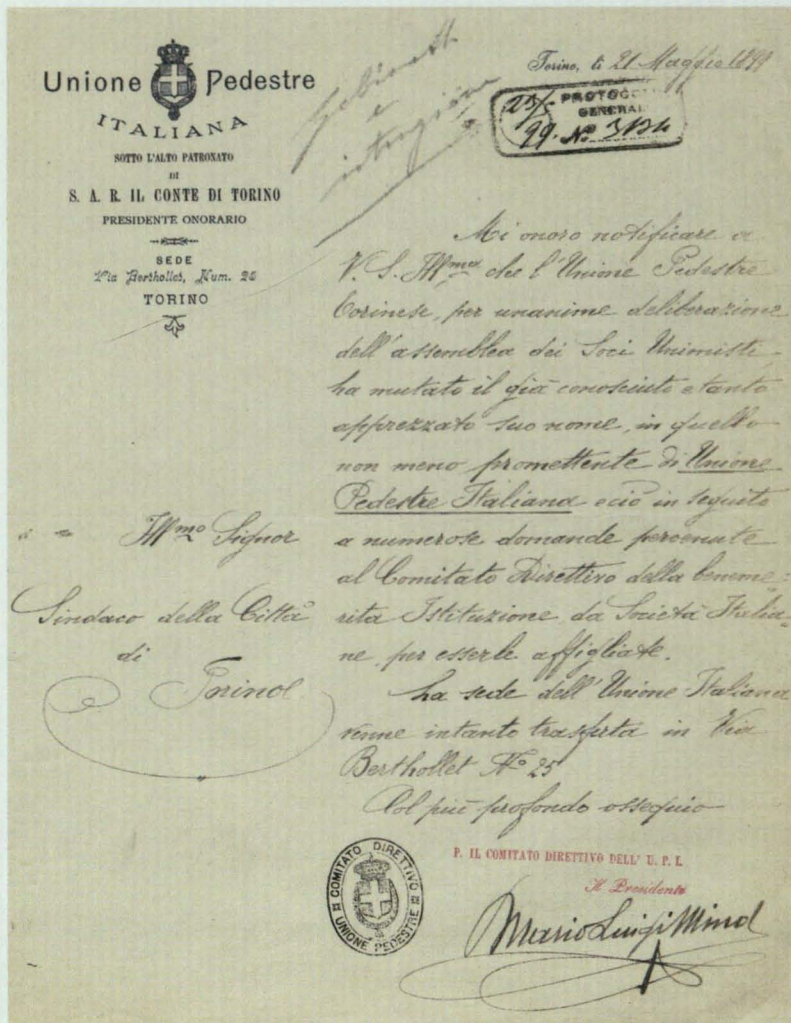 Unione Pedestre
ITALIANA
SOTTO L'ALTO PATRONATO
DI
S. A. R. IL CONTE DI TORINO
PRESIDENTE ONORARIO
SEDE
Via Berthollet, Num. 25
TORINO
Torino, li 21 Maggio 1899
23/5 PROTOCOLLO
GENERAL
99. No
Gabinetto
e
istruzione
Mi onoro notificare a
V. S. Ill.ma che l'Unione Pedestre
Torinese, per unanime deliberazione
dell'assemblea dei Soci Unionisti
ha mutato il già conosciuto e tanto
apprezzato suo nome, in quello
non meno promettente di Unione
Pedestre Italiana e ciò in seguito
a numerose domande pervenute
al Comitato Direttivo della beneme-
rita Istituzione da Società Italia-
ne, per esserle affigliate.
La sede dell'Unione Italiana
venne intanto trasferta in Via
Berthollet No 25
Col più profondo ossequio
Ill.mo Signor
Sindaco della Città
di
Torino
COMITATO DIRETTIVO
UNIONE PEDESTRE
P. IL COMITATO DIRETTIVO DELL' U. P. I.
Il Presidente
Mario Luigi Mina